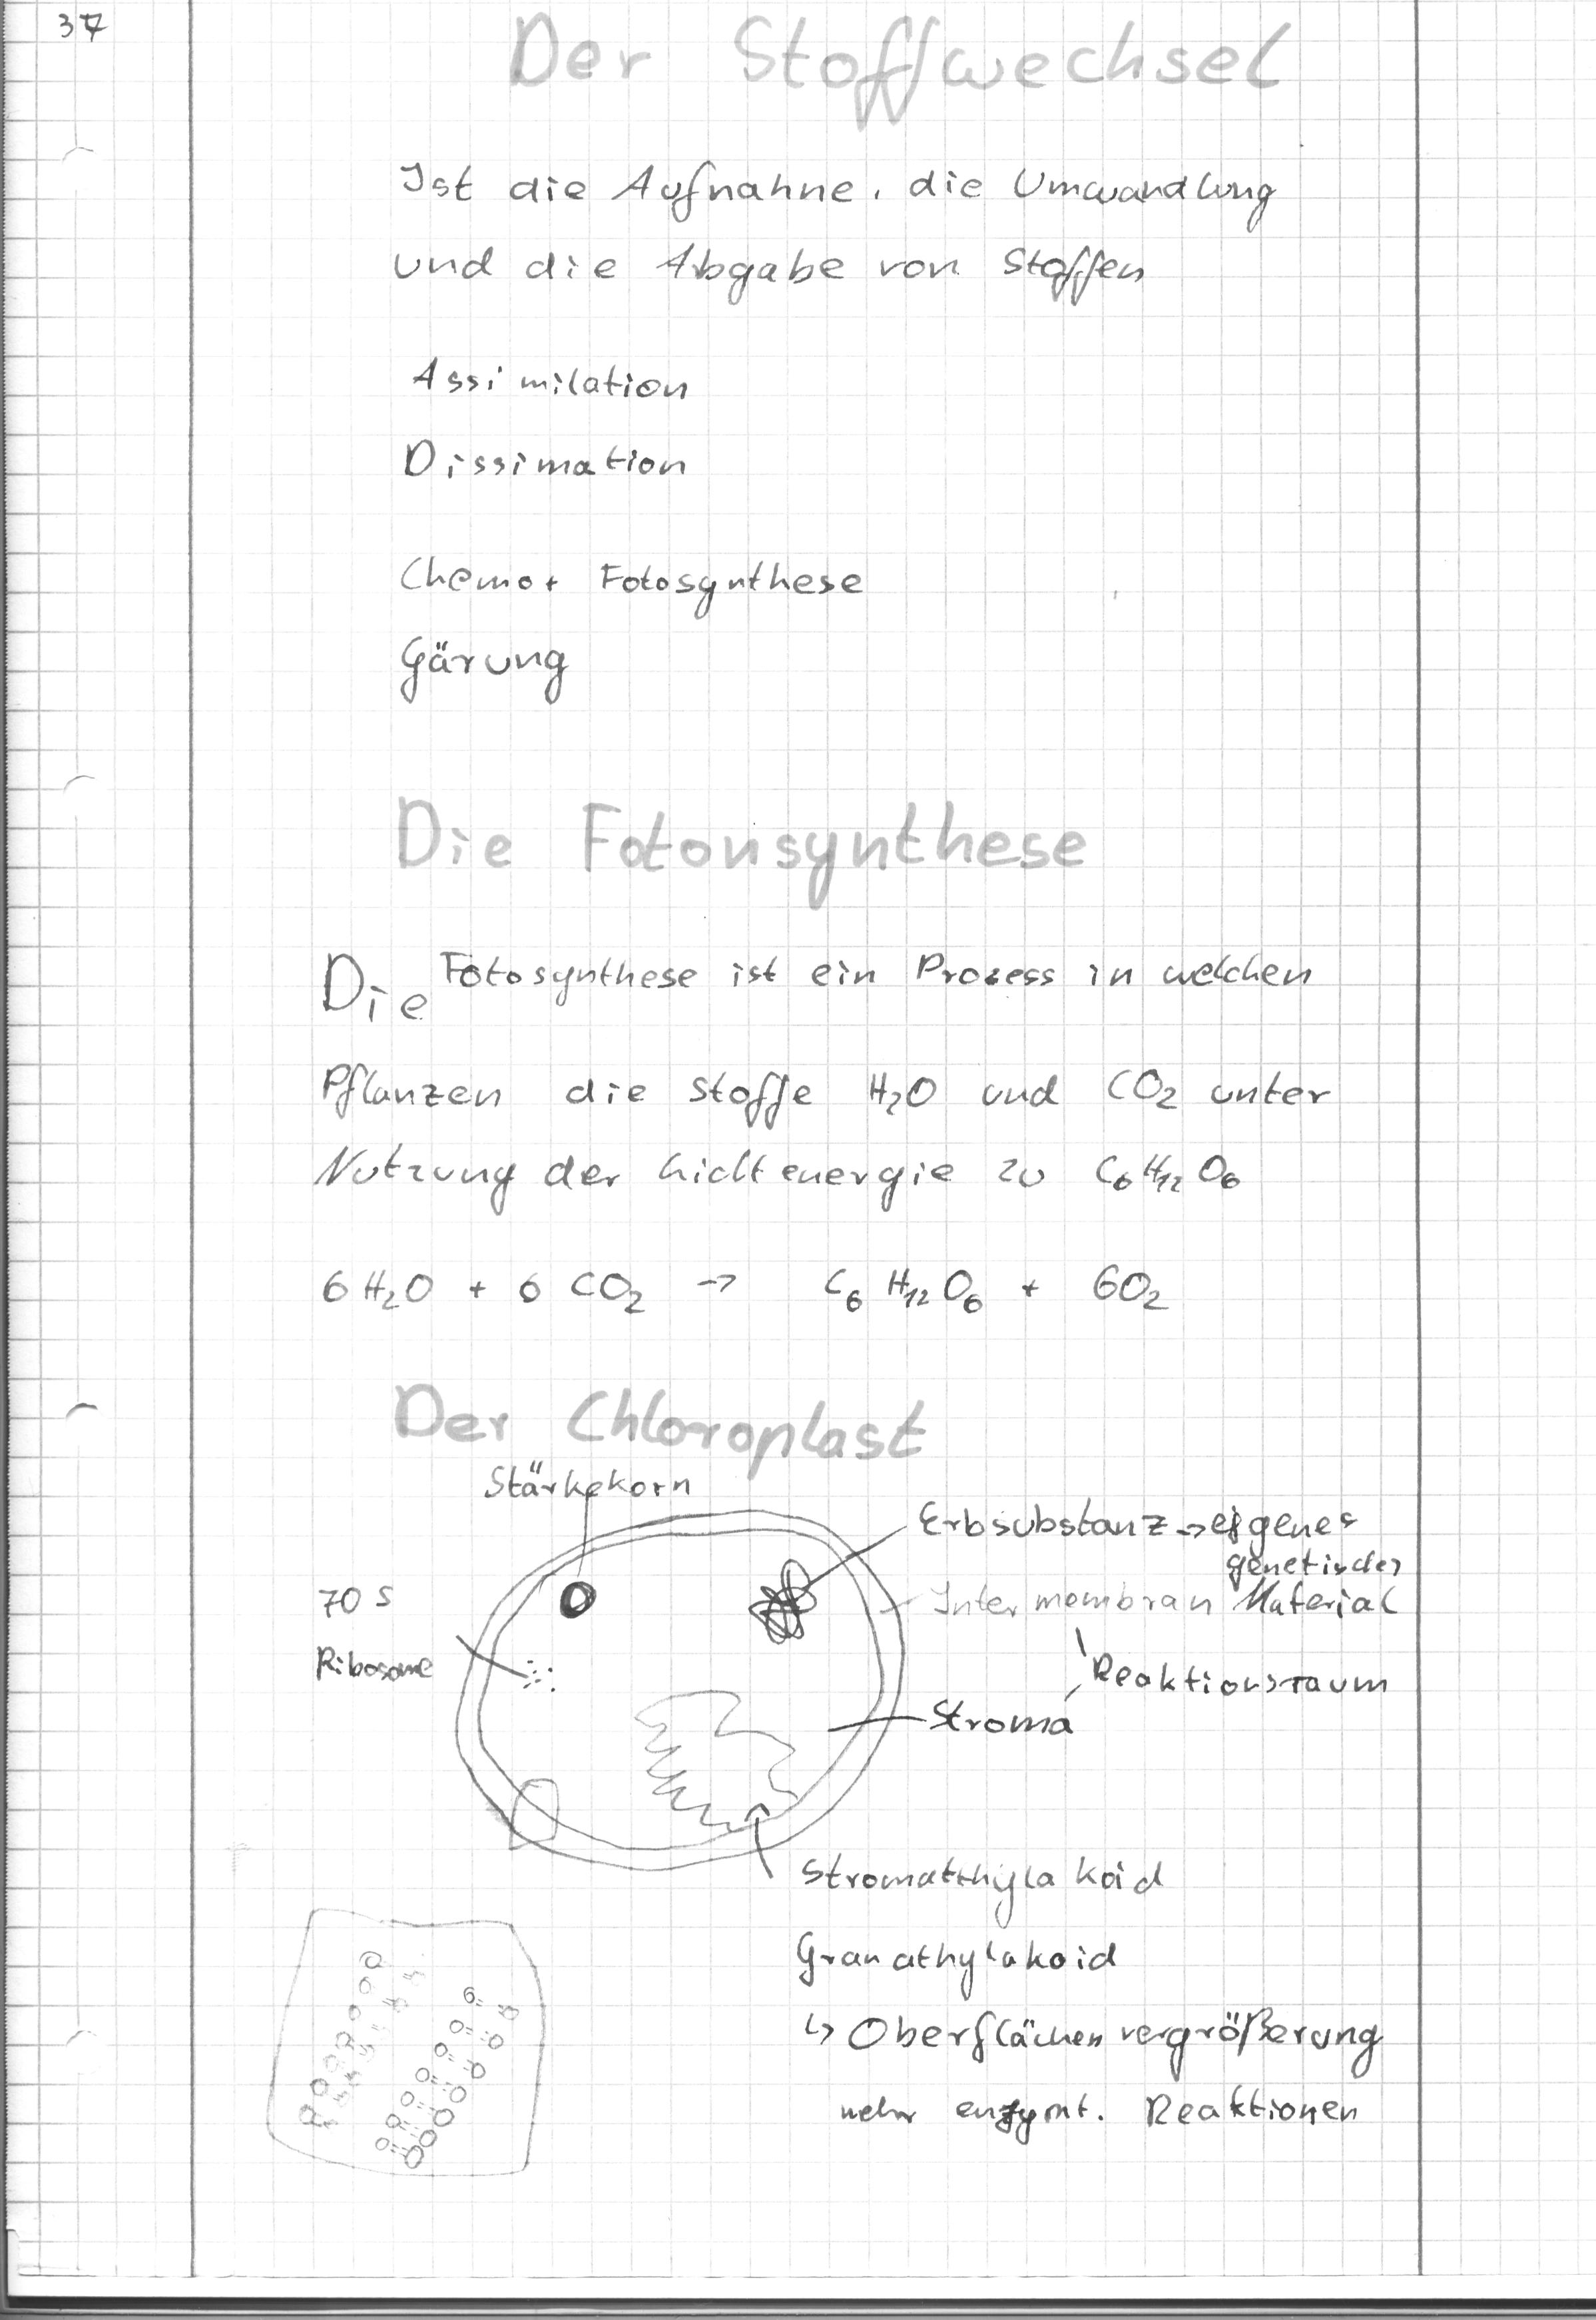 37
Der Stoffwechsel
Ist die Aufnahne, die Umwandlung
und die Abgabe von Stoffen
Assimilation
Dissimation
Chemo+ Fotosynthese
Gärung
Die Fotonsynthese
Die Fotosynthese ist ein Prozess in welchen
Pflanzen die Stoffe H₂O und CO₂ unter
Nutzung der Lichtenergie zu C₆H₁₂O₆
6 H₂O + 6 CO₂ → C₆ H₁₂ O₆ + 6O₂
Der Chloroplast
Stärkekorn
Erbsubstanz → eigenes
genetisches
Material
Intermembran
70 S
Ribosome
Reaktionsraum
Stroma
Stromatthylakoid
Granathylakoid
↳ Oberflächenvergrößerung
mehr enzymt. Reaktionen